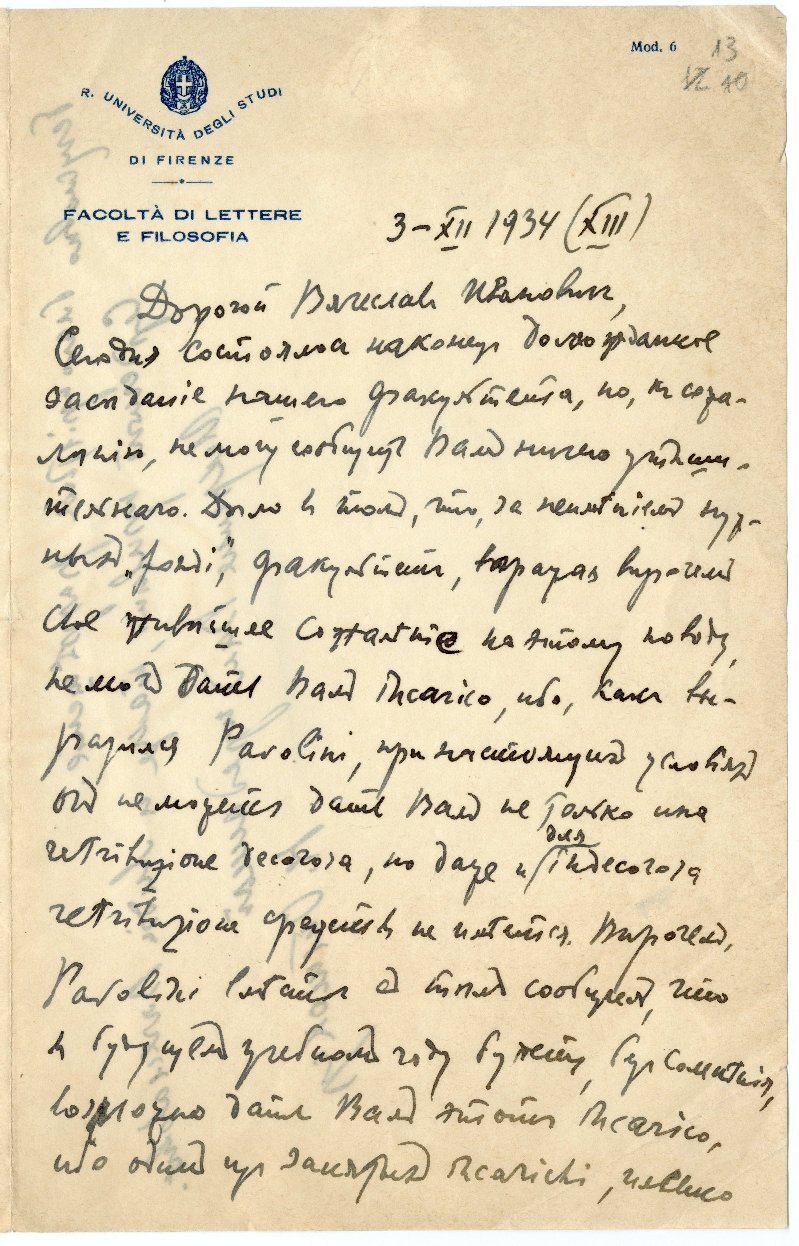 Mod. 6
13
R. UNIVERSITÀ DEGLI STUDI
DI FIRENZE
FACOLTÀ DI LETTERE
E FILOSOFIA
3-XII 1934 (XIII)
Дорогой Вячеславъ Ивановичъ,
Сегодня состоялось наконецъ долгожданное
засѣданіе нашего факультета, но, къ сожа-
лѣнію, не могу сообщить Вамъ ничего утѣши-
тельнаго. Дѣло въ томъ, что, за неимѣніемъ нуж-
ныхъ „fondi“, факультетъ, выразивъ впрочемъ
свое живѣйшее сожалѣніе по этому поводу,
не могъ дать Вамъ incarico, ибо, какъ вы-
разился Pavolini, при настоящихъ условіяхъ
онъ не можетъ дать Вамъ не только una
retribuzione decorosa, но даже и для indecorosa
retribuzione средствъ не имѣется. Впрочемъ,
Pavolini вмѣстѣ съ тѣмъ сообщилъ, что
въ будущемъ учебномъ году будетъ, безъ сомнѣнія,
возможно дать Вамъ этотъ incarico,
ибо одинъ изъ занятыхъ incarichi, именно